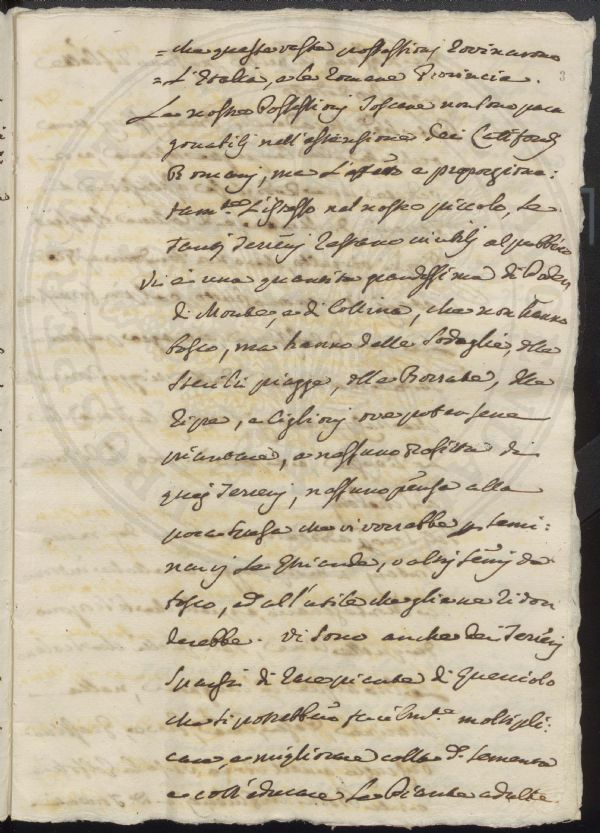 = che queste vaste possessioni rovinarono
= L'Italia, e le Romane Provincie.
3
Le nostre Possessioni Toscane non sono para
gonabili nell'estensione dei Latifondi
Romani, ma l'effetto è proporziona:
tam.te L'istesso nel nostro piccolo, se
tanti Terreni restano inutili al pubblico
Vi è una quantità grandissima di Poderi
di Monte, e di Collina, che non hanno
bosco, ma hanno delle Sodaglie, delle
sterili piagge, delle Borrate, delle
ripe, e Ciglioni ove potersene
piantare, e nessuno profitta di
quei Terreni, nessuno pensa alla
poca spesa che vi vorrebbe p semi:
narvi le Ghiande, o altri semi da
bosco, ed all'utile che gliene ridon
derebbe. Vi sono anche dei Terreni
sparsi di rare piante di Querciolo
che si potrebbero facilm.te moltipli:
care, e migliorare colla d.a sementa
e coll'educare le Piante adulte.